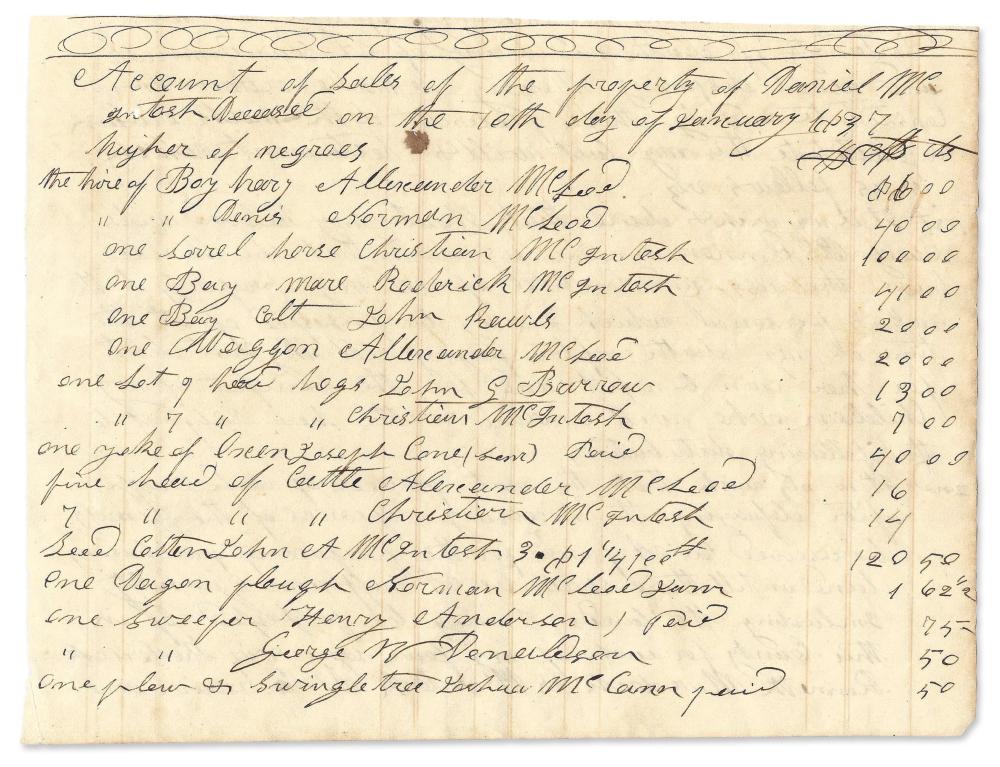 Account of Sales of the property of Daniel Mc
intosh Deceased on the 10th day of January 1837
higher of negroes $ cts
the hire of Boy hary Allexander McLeod 00
" " Denis Norman McLeod 40 00
one sorrel horse Christian McIntosh 100 00
one Bay mare Roderick McIntosh 41 00
one Bay Colt John Rawls 20 00
one Waggon Allexander McLeod 20 00
one Lot of hogs John G Burrow 13 00
" 7 " " Christian McIntosh 7 00
one yoke of Oxen Joseph Cone (sen) Paid 40 00
five head of Cattle Alexander McLeod 16
7 " " " Christian McIntosh 14
Seed Cotten John A McIntosh 3 120 50
one Dagon plough Norman McLeod Junr 1 62 1/2
one sweeper Henry Anderson ) Paid 75
" " George W Donaldson 50
one plow & swingletree Joshua McCann paid 50